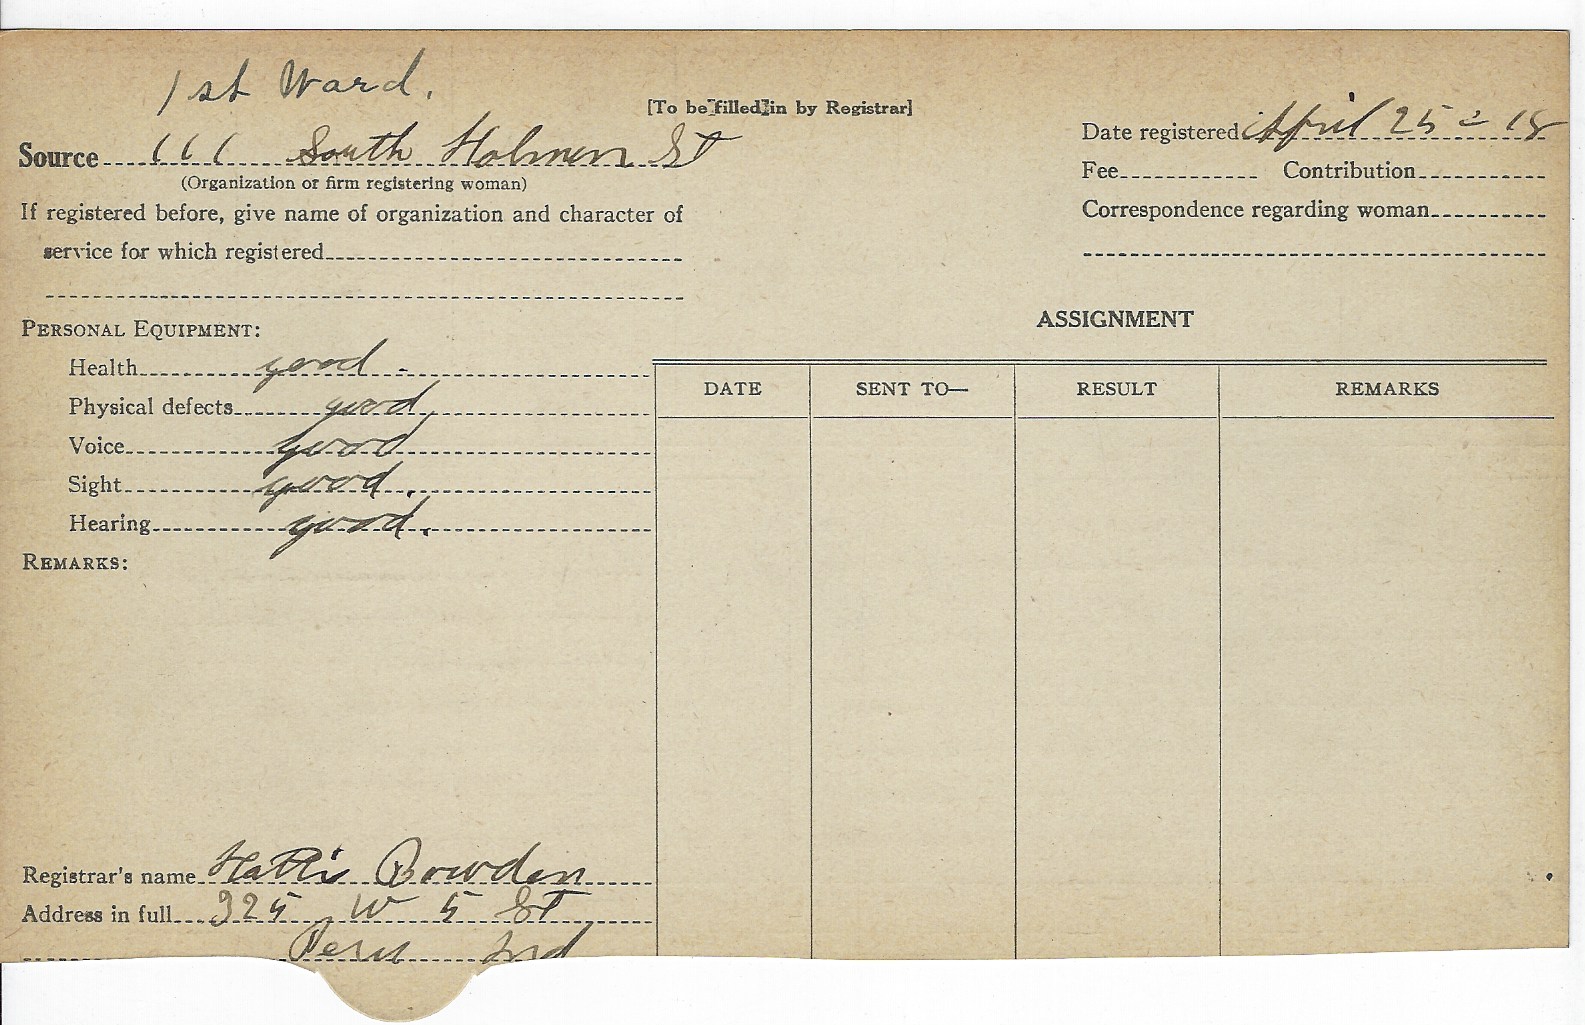 1st Ward.
[To be filled in by Registrar]
Source 111 South Holmen St
(Organization or firm registering woman)
If registered before, give name of organization and character of
service for which registered
Date registered April 25 = 18
Fee Contribution
Correspondence regarding woman
PERSONAL EQUIPMENT:
Health good -
Physical defects good,
Voice good
Sight good.
Hearing good.
REMARKS:
ASSIGNMENT
DATE SENT TO— RESULT REMARKS
Registrar's name Hattie Bowden
Address in full 325 W 5 St
Peru Ind